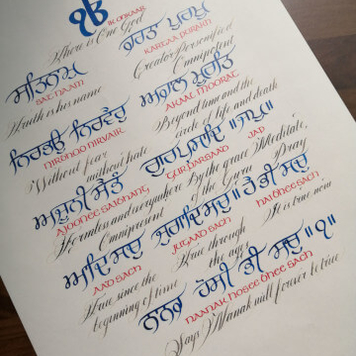 ੴ
IK ONKAAR
There is One God
ਸਤਿਨਾਮੁ
SAT NAAM
Truth is his name
ਕਰਤਾ ਪੁਰਖੁ
KARTAA PURAKH
Creator Personified
Omnipotent
ਨਿਰਭਉ ਨਿਰਵੈਰੁ
NIRBHOO NIRVAIR
Without fear
without hate
ਅਕਾਲ ਮੂਰਤਿ
AKAAL MOORAT
Beyond time and the
circle of life and death
ਅਜੂਨੀ ਸੈਭੰ
AJOONEE SAIBHANG
Formless and everywhere
Omnipresent
ਗੁਰਪ੍ਰਸਾਦਿ ॥ ਜਪੁ ॥
GURPARSAAD JAP
By the grace Meditate,
of the Guru Pray
ਆਦਿ ਸਚੁ
AAD SACH
True since the
beginning of time
ਜੁਗਾਦਿ ਸਚੁ ॥
JUGAAD SACH
True through
the ages
ਹੈ ਭੀ ਸਚੁ
HAI BHEE SACH
He is true now
ਨਾਨਕ ਹੋਸੀ ਭੀ ਸਚੁ ॥੧॥
NAANAK HOSEE BHEE SACH
Says Nanak will forever be true